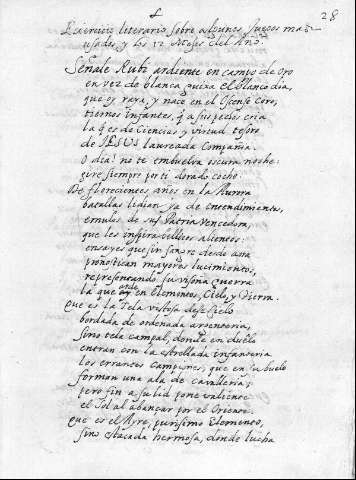 28
Exercicio literario sobre algunos Juegos mas
usados, y los 12 Meses del Año.
Señale Rubi ardiente en campo de oro
en vez de blanca pieza el blanco dia,
que oy raya, y nace en el Coro,
tiernos infantes, q̃ a sus pechos cria
la q̃ es de Ciencias, y virtud tesoro
de JESUS laureada Compañia.
O dia! no te embuelva oscura noche:
gire siempre por ti dorado coche.
De florecientes años en la Aurora
batallas lidian ya de entendimientos,
emulos de su Patria Vencedora,
que les inspira bellicos alientos:
ensayes que sin sangre desde aora
pronostican mayores lucimientos,
representando su visoña guerra
la que arde en Elementos, Cielo, y Tierra.
Que es la Tela vistosa deste Cielo
bordada de ordenada argenteria,
sino tela campal, donde en duelo
entran con la estrellada infanteria
los errantes campiones, que en su buelo
forman una ala de cavalleria;
pero fin a su lid pone valiente
el Sol al abançar por el Oriente.
Que es el Ayre, purisimo Elemento,
sino estacada hermosa, donde lucha